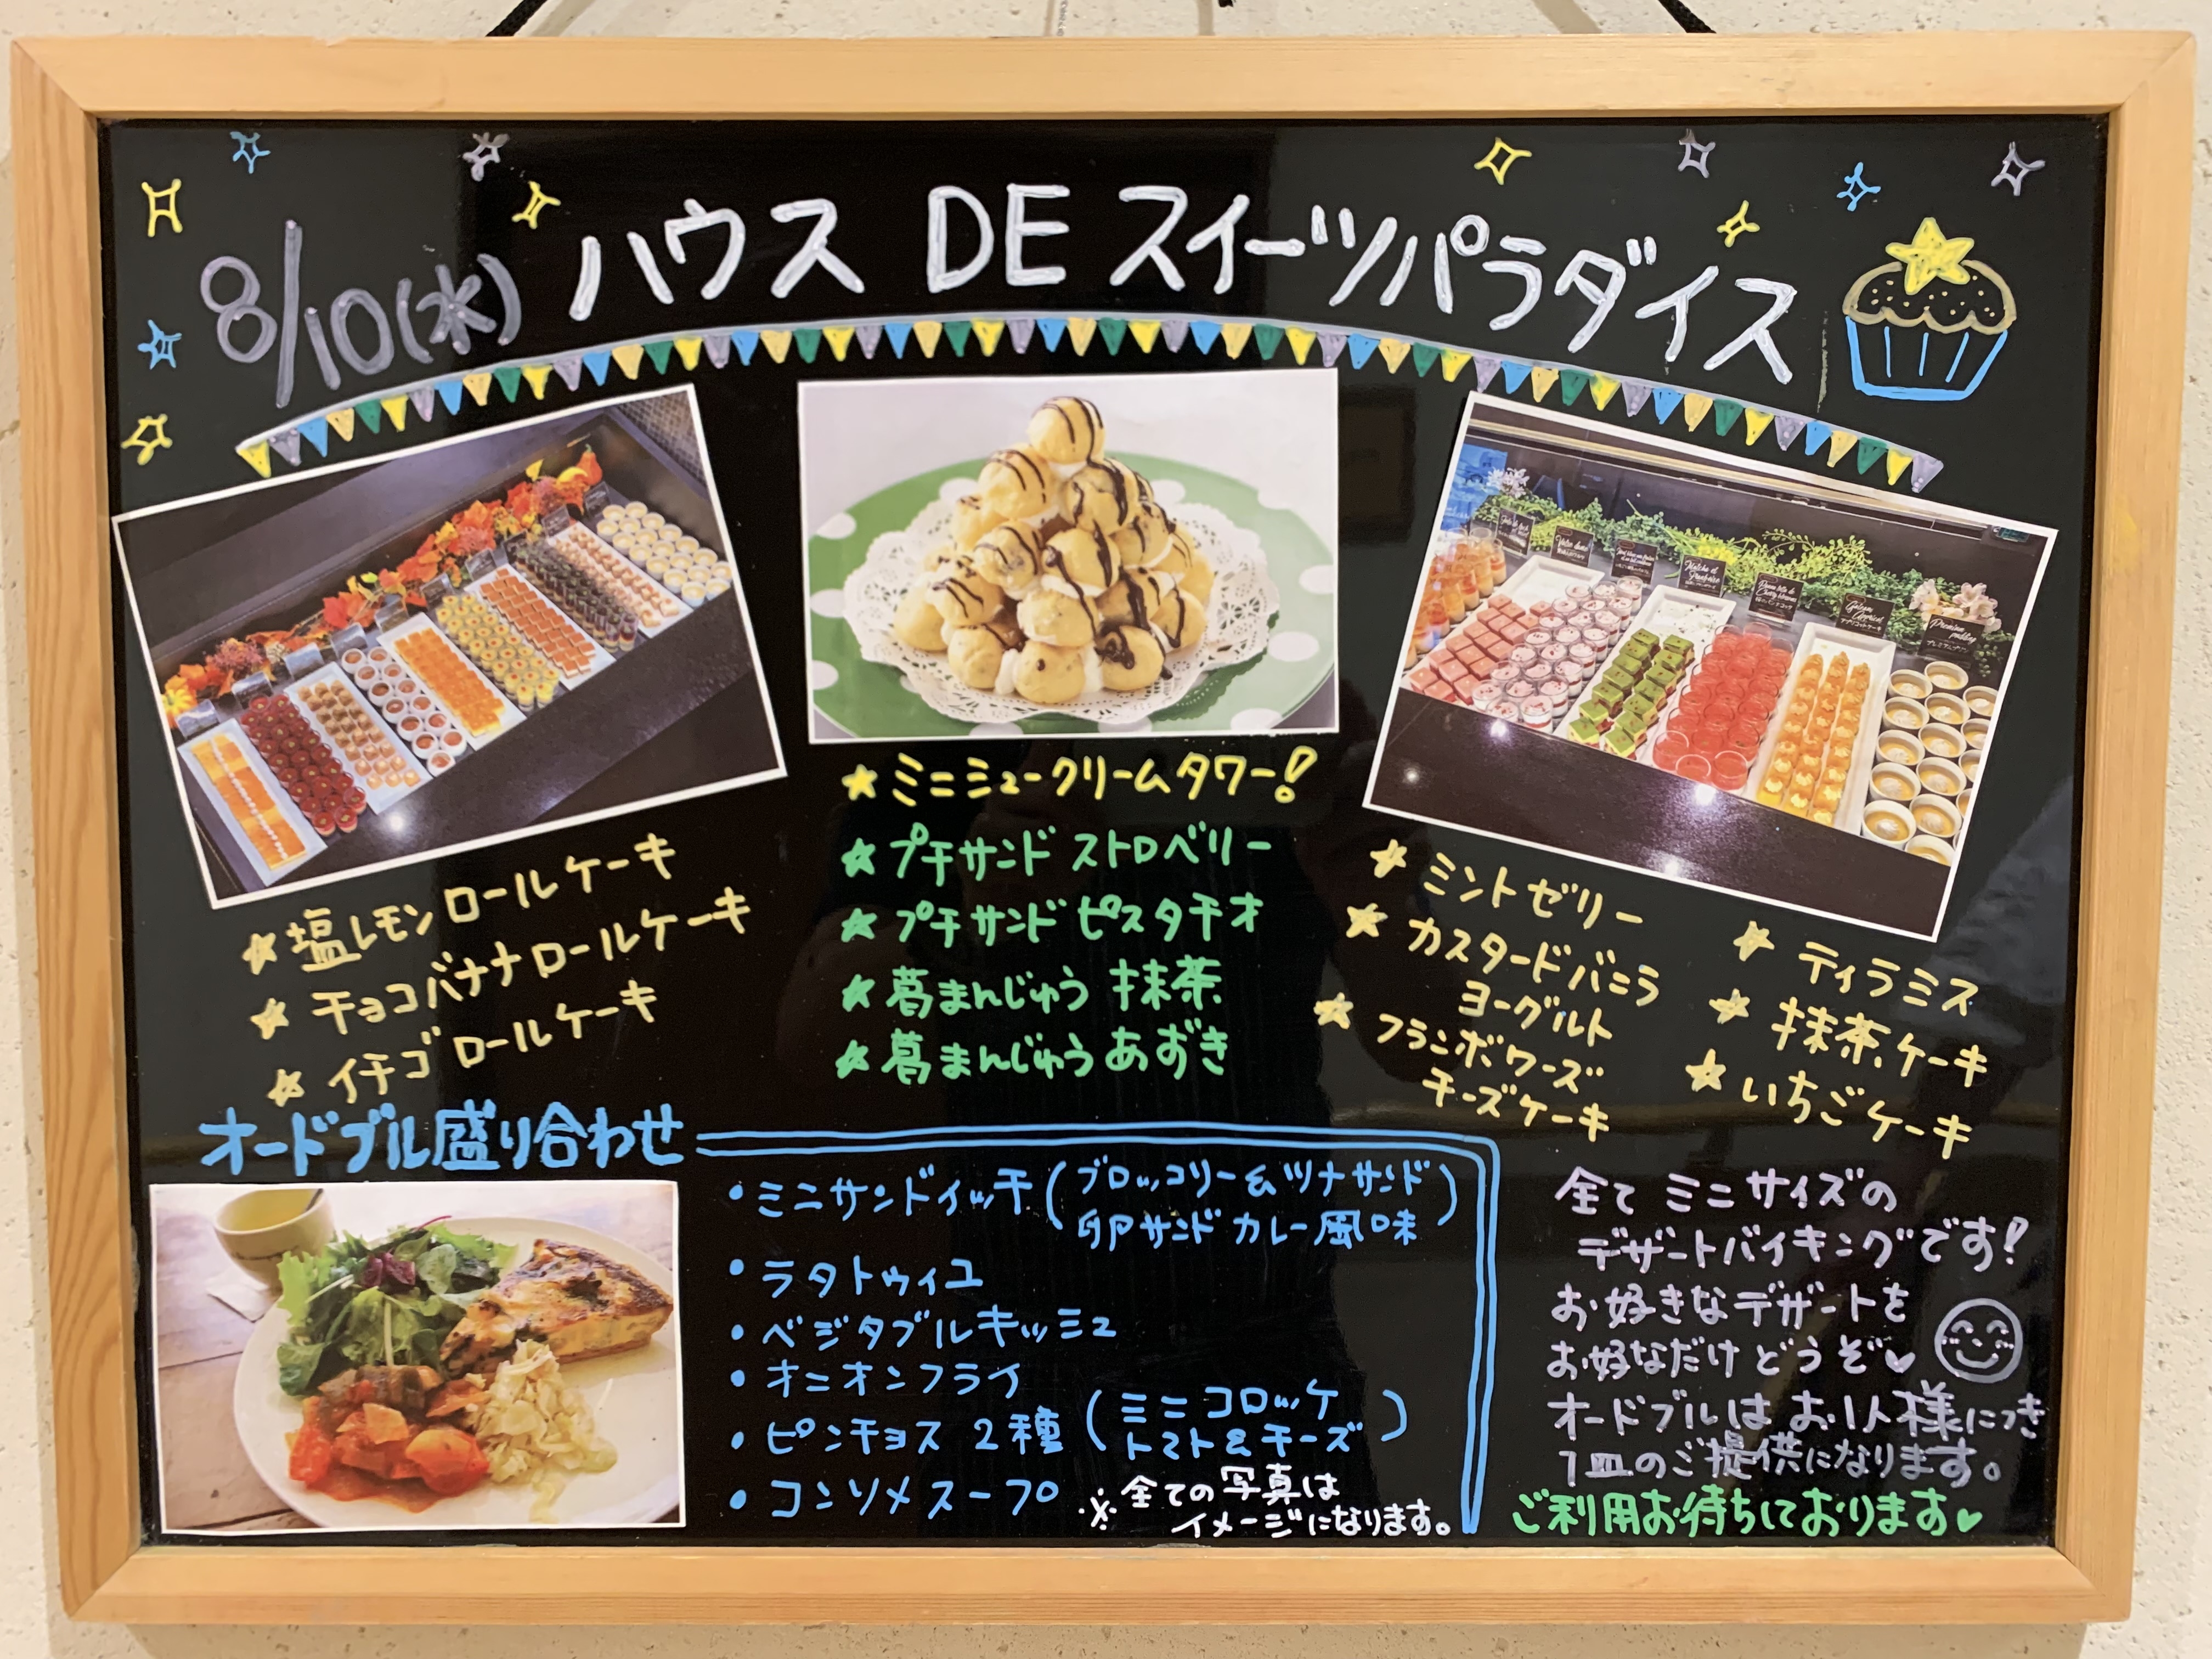 8/10(水) ハウス DE スイーツパラダイス
★塩レモンロールケーキ
★チョコバナナロールケーキ
★イチゴロールケーキ
★ミニシュークリームタワー!
★プチサンド ストロベリー
★プチサンド ピスタチオ
★葛まんじゅう 抹茶
★葛まんじゅう あずき
★ミントゼリー
★カスタードバニラ
ヨーグルト
★フランボワーズ
チーズケーキ
★ティラミス
★抹茶ケーキ
★いちごケーキ
オードブル盛り合わせ
・ミニサンドイッチ(ブロッコリー&ツナサンド
卵サンド カレー風味)
・ラタトゥイユ
・ベジタブルキッシュ
・オニオンフライ
・ピンチョス 2種(ミニコロッケ
トマト&チーズ)
・コンソメスープ
※全ての写真は
イメージになります。
全て ミニサイズの
デザートバイキングです!
お好きなデザートを
お好なだけどうぞ♥
オードブルは お1人様につき
1皿のご提供になります。
ご利用お待ちしております♥